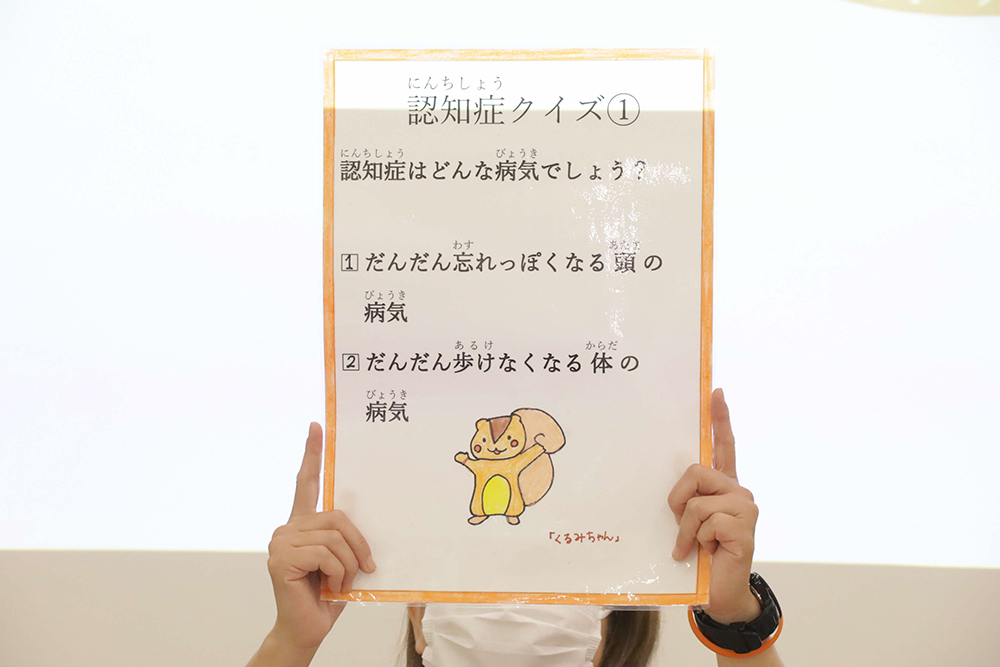 にんちしょう
認知症クイズ①
にんちしょう びょうき
認知症はどんな病気でしょう？
わす あたま
1 だんだん忘れっぽくなる頭の
びょうき
病気
あるけ からだ
2 だんだん歩けなくなる体の
びょうき
病気
「くるみちゃん」